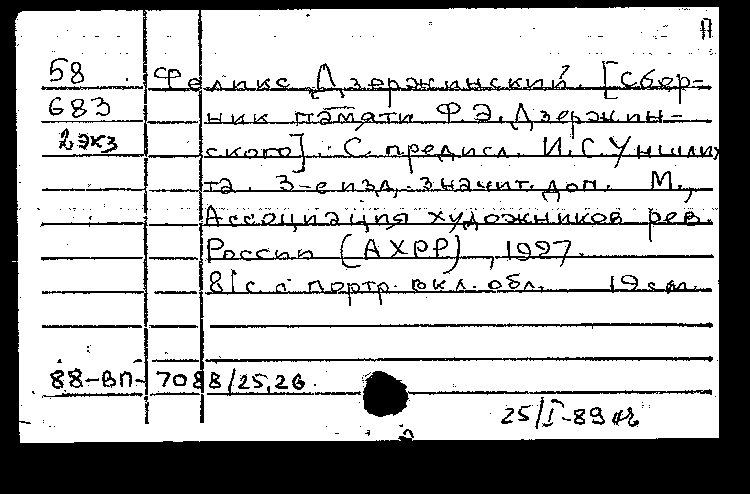 П
58 Феликс Дзержинский. [Сбор-
683 ник памяти Ф.Э. Дзержин-
2 экз ского]. С предисл. И.С. Уншлих
та. 3-е изд, значит. доп. М.,
Ассоциация художников рев.
России (АХРР), 1927.
81 с. с портр. вкл. обл. 19 см.
88-ВП-7088/25,26.
25/I-89